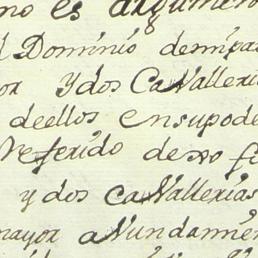 no es argumen
l Dominio demipa
or y dos Cavalleri
deellos ensupode
Referido dexo f
y dos cavallerias
mayor avundamien